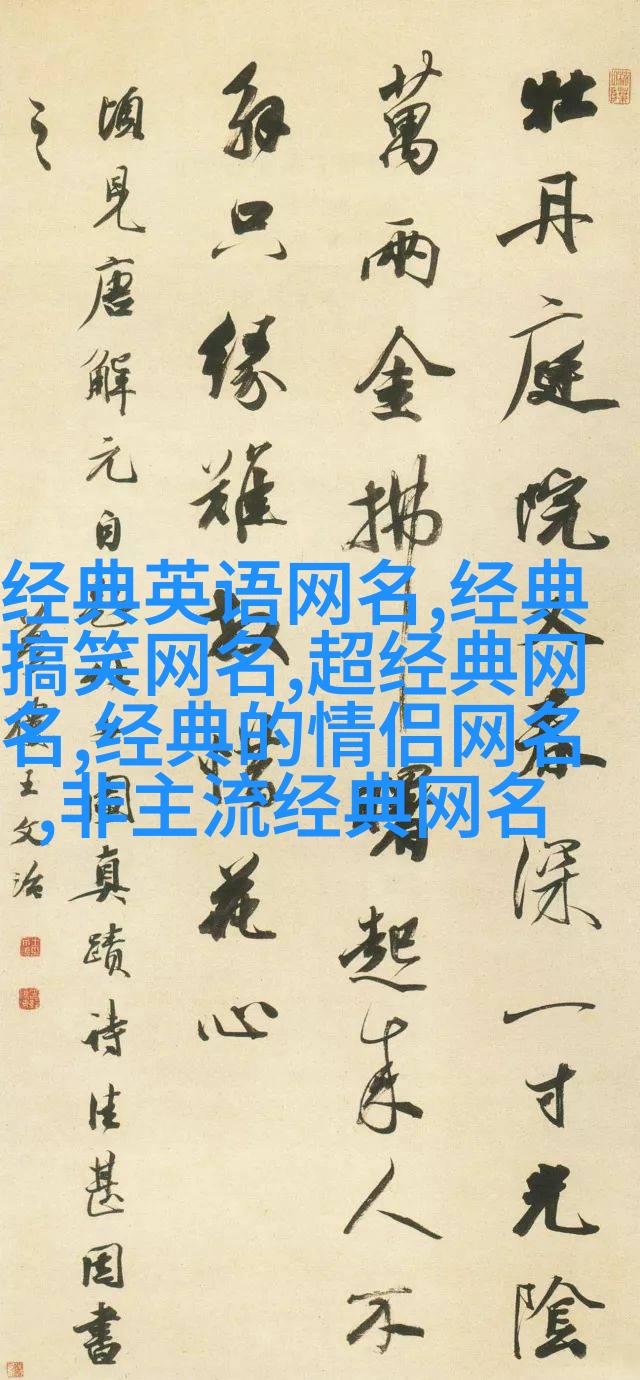 牡丹庭院又春深一寸光陰
萬兩金拂曙起來人不
解只緣難放惜花心
頃見唐解元自圖真蹟詩佳甚因書
之
王文治
经典英语网名,经典
搞笑网名,超经典网
名,经典的情侣网名
,非主流经典网名